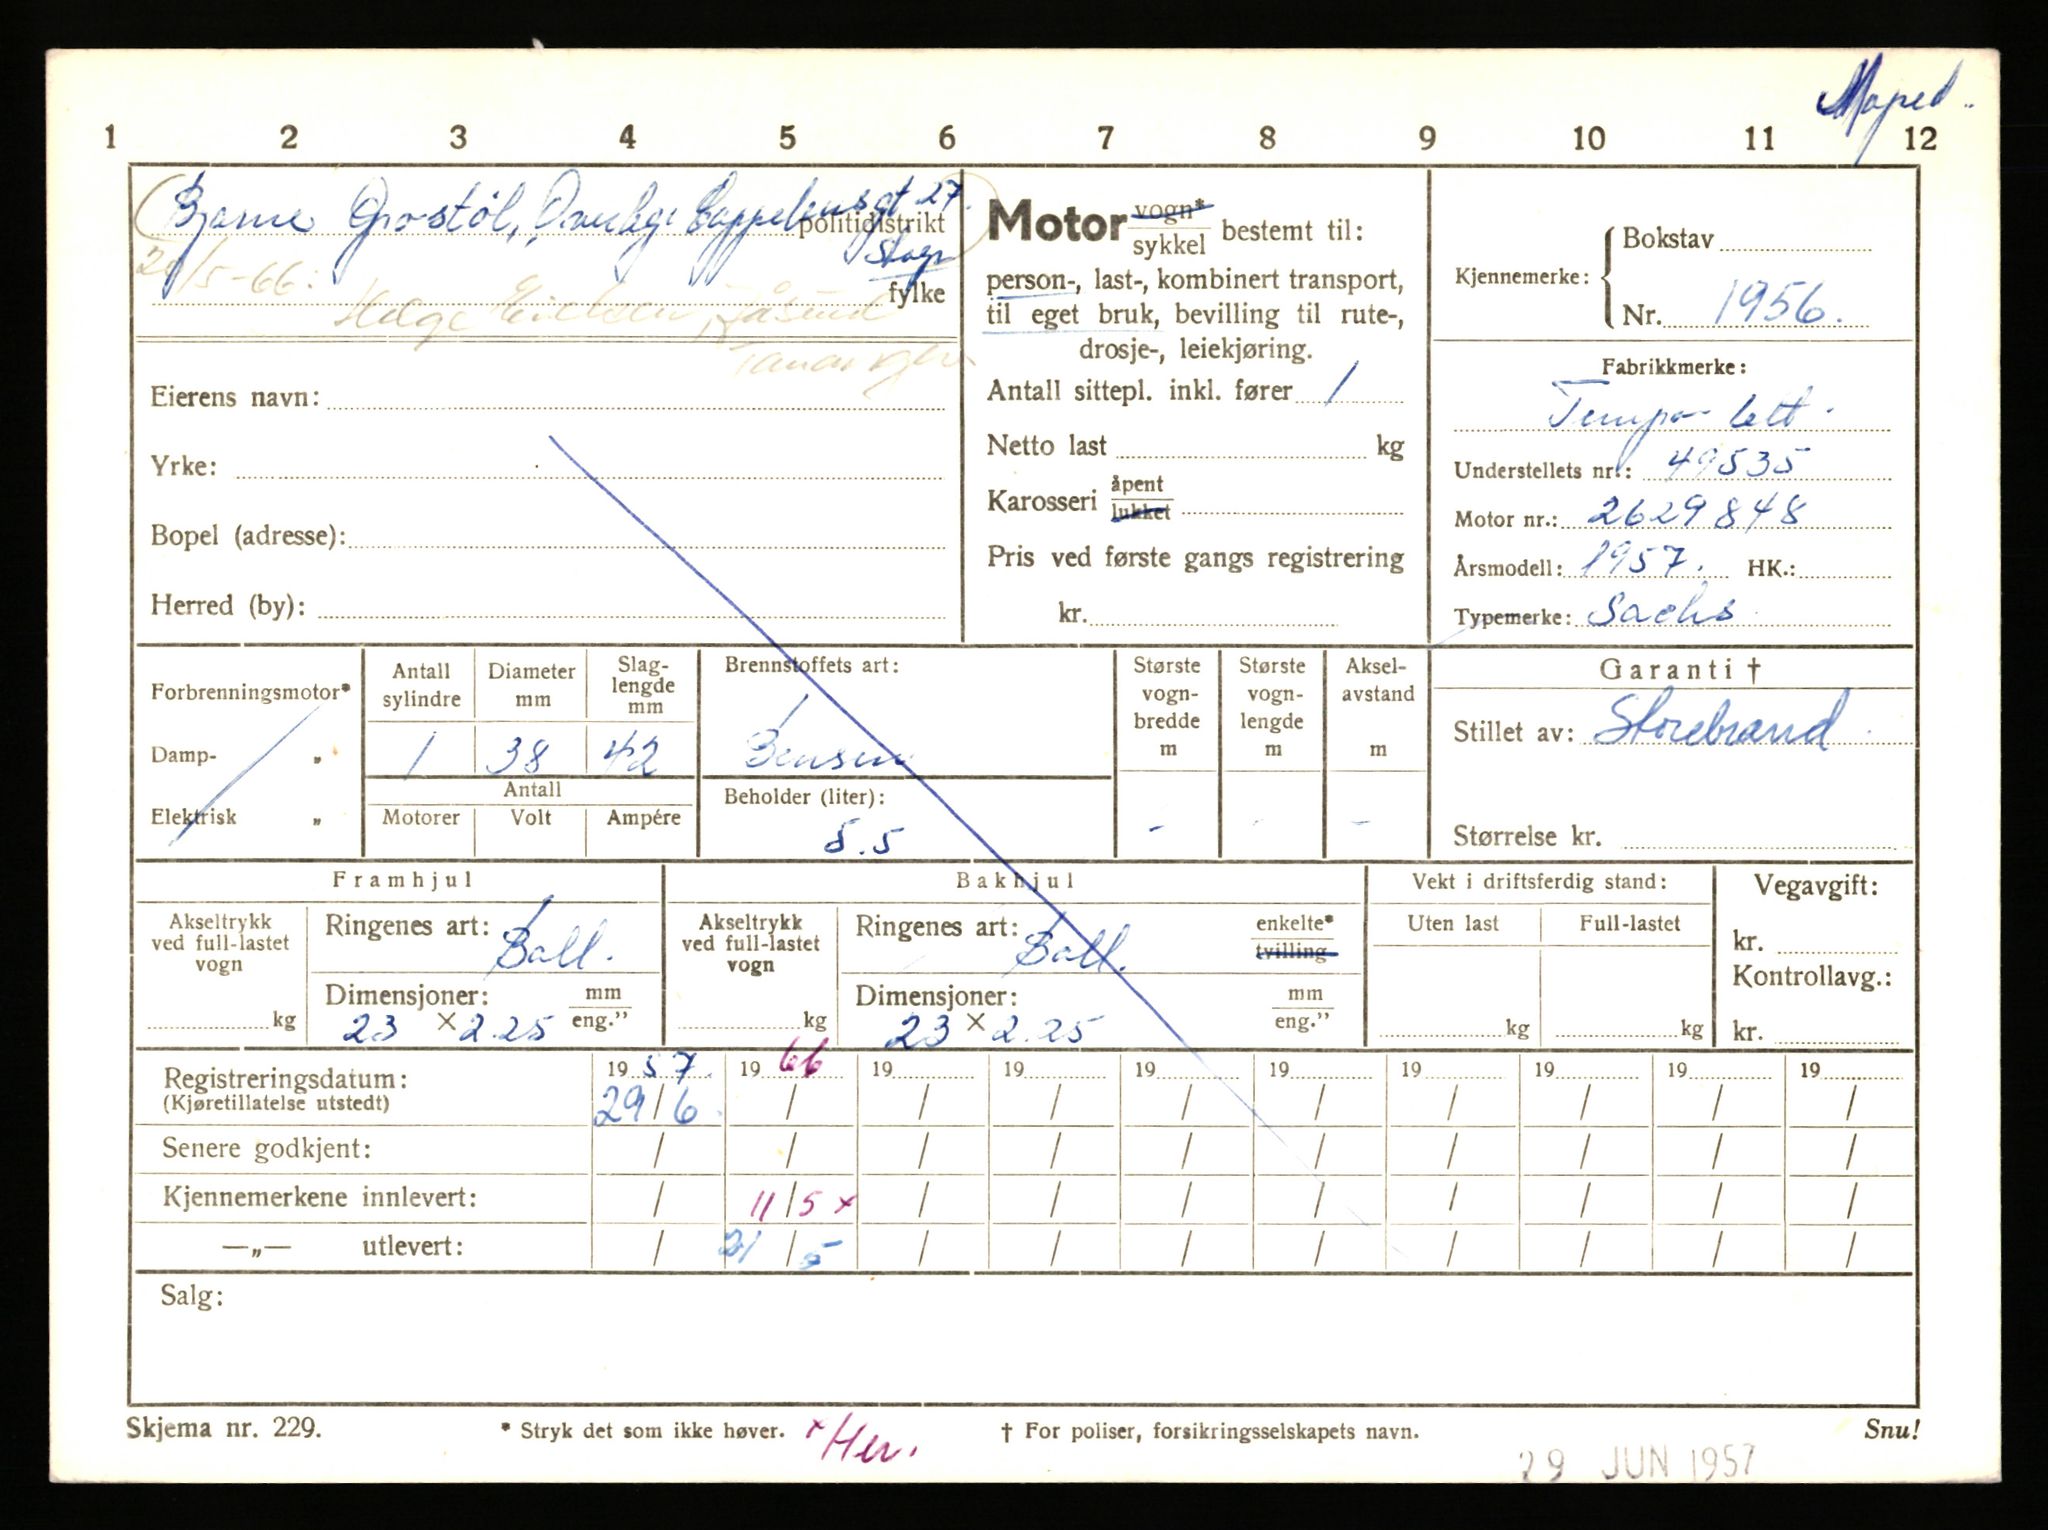 Moped.
1 2 3 4 5 6 7 8 9 10 11 12
Bjarne Grostöl, Cappelensgt 27.
politidistrikt
Stavgr
20/5-66: Helge
fylke
Eierens navn:
Yrke:
Bopel (adresse):
Herred (by):
Motor vogn* / sykkel bestemt til:
person-, last-, kombinert transport,
til eget bruk, bevilling til rute-,
drosje-, leiekjøring.
Antall sittepl. inkl. fører 1
Netto last kg
Karosseri åpent / lukket
Pris ved første gangs registrering
kr.
Kjennemerke: Bokstav
Nr. 1956.
Fabrikkmerke:
Tempo lett.
Understellets nr.: 49535
Motor nr.: 2629848
Årsmodell: 1957. HK.:
Typemerke: Sachs
Forbrenningsmotor*
Damp- „
Elektrisk „
Antall sylindre Diameter mm Slag-lengde mm
1 38 42
Antall
Motorer Volt Ampére
Brennstoffets art:
Bensin
Beholder (liter):
5.5
Største vogn-bredde m
-
Største vogn-lengde m
-
Aksel-avstand m
-
Garanti †
Stillet av: Storebrand
Størrelse kr.
Framhjul
Akseltrykk ved full-lastet vogn
kg
Ringenes art: Ball.
Dimensjoner: mm / eng.”
23 × 2.25
Bakhjul
Akseltrykk ved full-lastet vogn
kg
Ringenes art: Ball. enkelte* / tvilling
Dimensjoner: mm / eng.”
23 × 2.25
Vekt i driftsferdig stand:
Uten last Full-lastet
kg kg
Vegavgift:
kr.
Kontrollavg.:
kr.
Registreringsdatum: 1957. 1966 19 19 19 19 19 19 19 19
(Kjøretillatelse utstedt) 29/6. / / / / / / / / /
Senere godkjent: / / / / / / / / / /
Kjennemerkene innlevert: / 11/5 x / / / / / / / /
—„— utlevert: / 21/5 / / / / / / / /
Salg:
Skjema nr. 229. * Stryk det som ikke høver. x Her. † For poliser, forsikringsselskapets navn. Snu!
29 JUN 1957